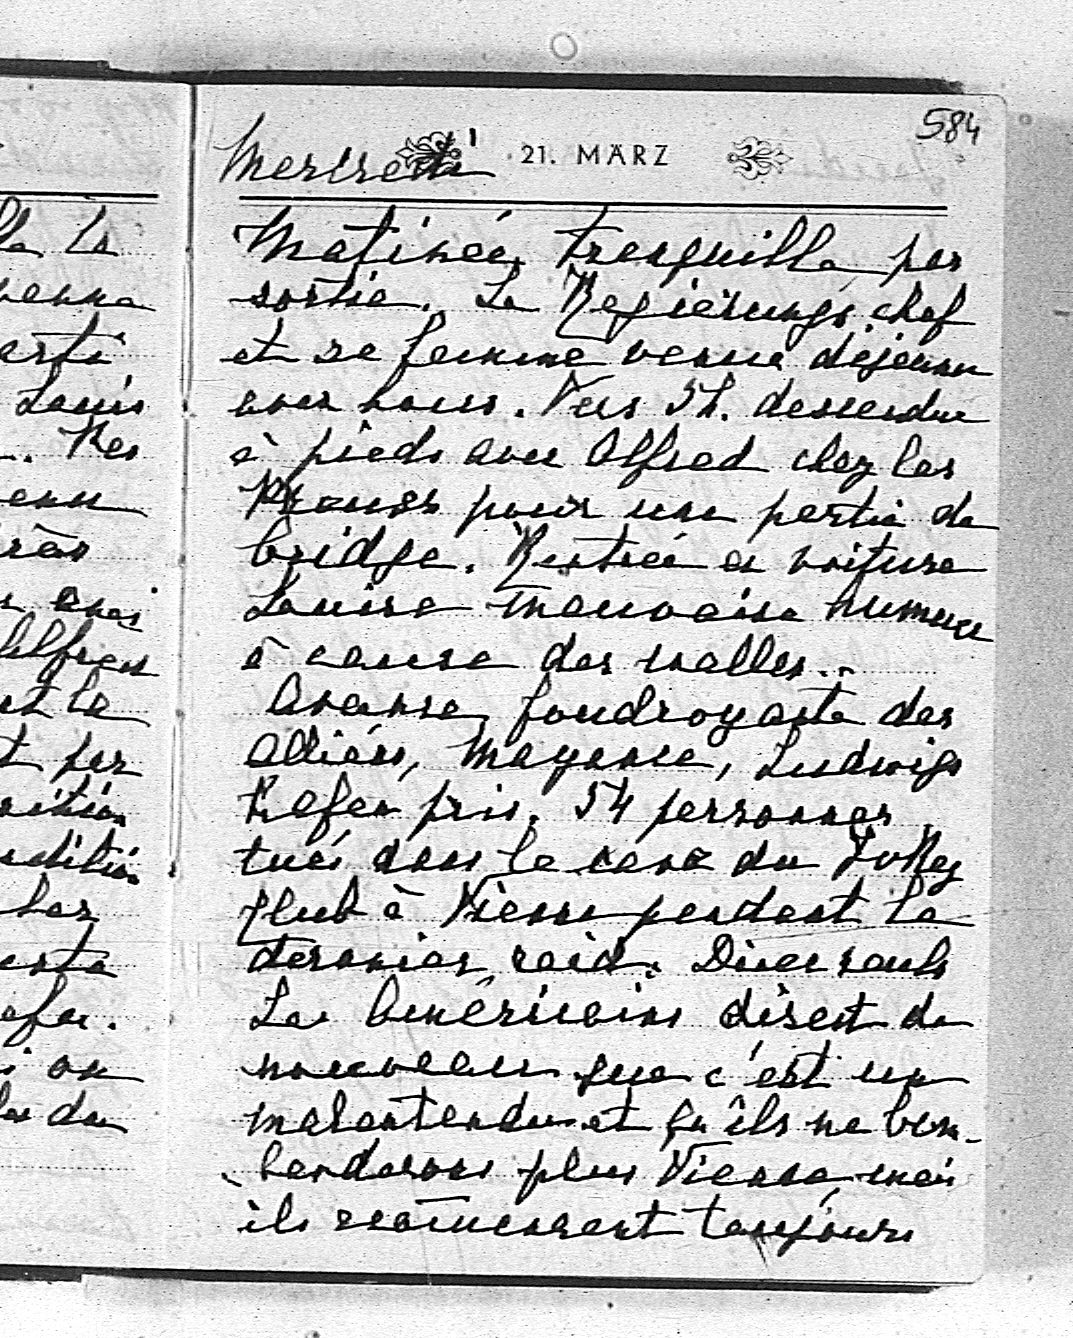 584
Mercredi 21. MÄRZ
Matinée tranquille pas
sortie. Le Regierungschef
et sa femme venus déjeuner
avec nous. Vers 5h. descendue
à pieds avec Alfred chez les
pour une partie de
bridge. Rentrée en voiture
Louise mauvaise humeur
à cause des malles..
Avance foudroyante des
Alliés, Mayence, Ludwigs
hafen pris. 54 personnes
tués dans la cave du Jokey
Club à Vienne pendant le
dernier raid. Diner seuls
Les Américains disent de
nouveau que c'est un
malentendu et qu'ils ne bom-
barderons plus Vienne, mais
ils recommencent toujours
la
Louis
Alfred
et la
t pas
on